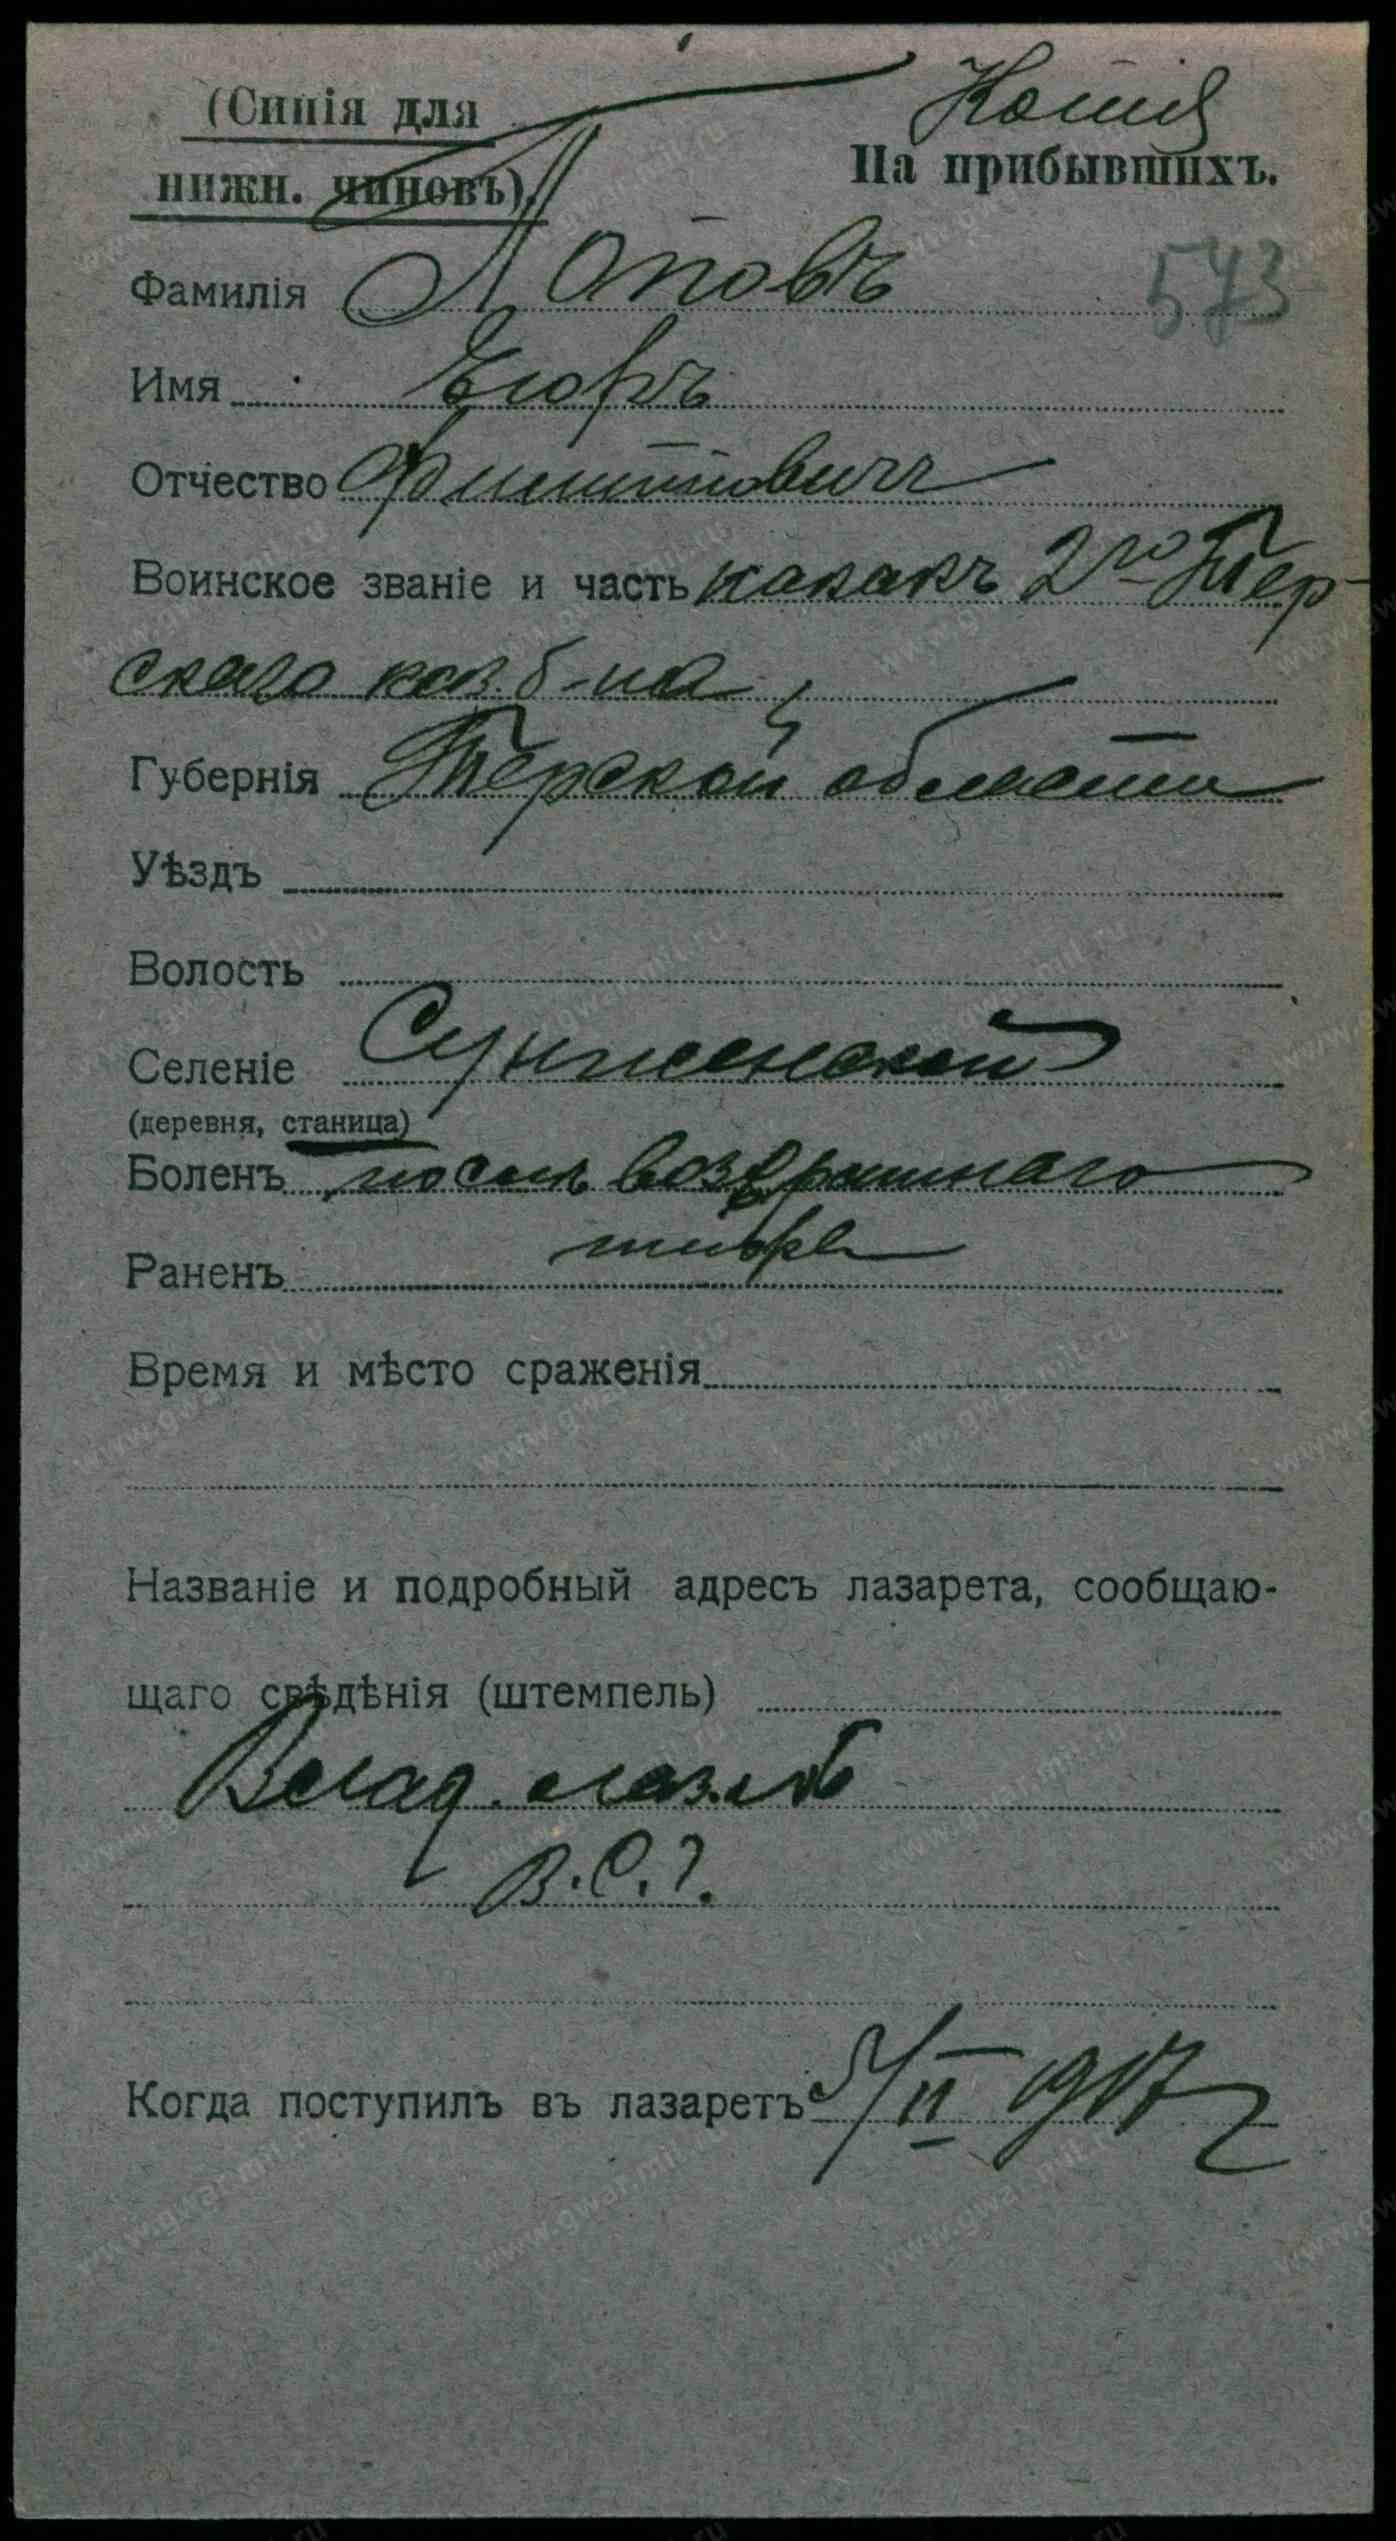 (Синія для
нижн. чиновъ).
Копія
На прибывшихъ.
573
Фамилія Поповъ
Имя Егоръ
Отчество Филипповичъ
Воинское званіе и часть казакъ 2го Тер-
скаго каз. б-на
Губернія Терской области
Уѣздъ
Волость
Селеніе Сунженской
(деревня, станица)
Боленъ послѣ возвратнаго
тифа
Раненъ
Время и мѣсто сраженія
Названіе и подробный адресъ лазарета, сообщаю-
щаго свѣдѣнія (штемпель)
Влад. лаз. №
В.С.Г.
Когда поступилъ въ лазаретъ 5/II 1917 г